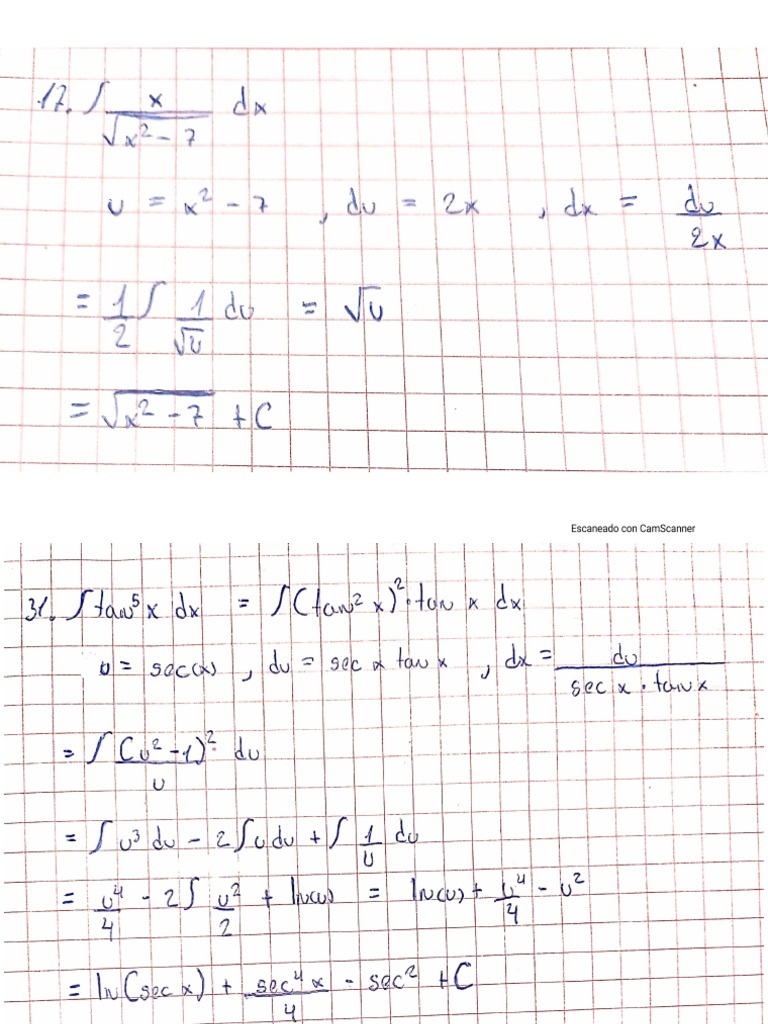 17. ∫ x/√(x² - 7) dx
u = x² - 7 , du = 2x , dx = du/2x
= 1/2 ∫ 1/√u du = √u
= √(x² - 7) + C
Escaneado con CamScanner
31. ∫ tan⁵ x dx = ∫ (tan² x)² · tan x dx
u = sec(x) , du = sec x tan x , dx = du/(sec x · tan x)
= ∫ (u² - 1)²/u du
= ∫ u³ du - 2 ∫ u du + ∫ 1/u du
= u⁴/4 - 2 ∫ u²/2 + ln(u) = ln(u) + u⁴/4 - u²
= ln(sec x) + sec⁴ x/4 - sec² + C